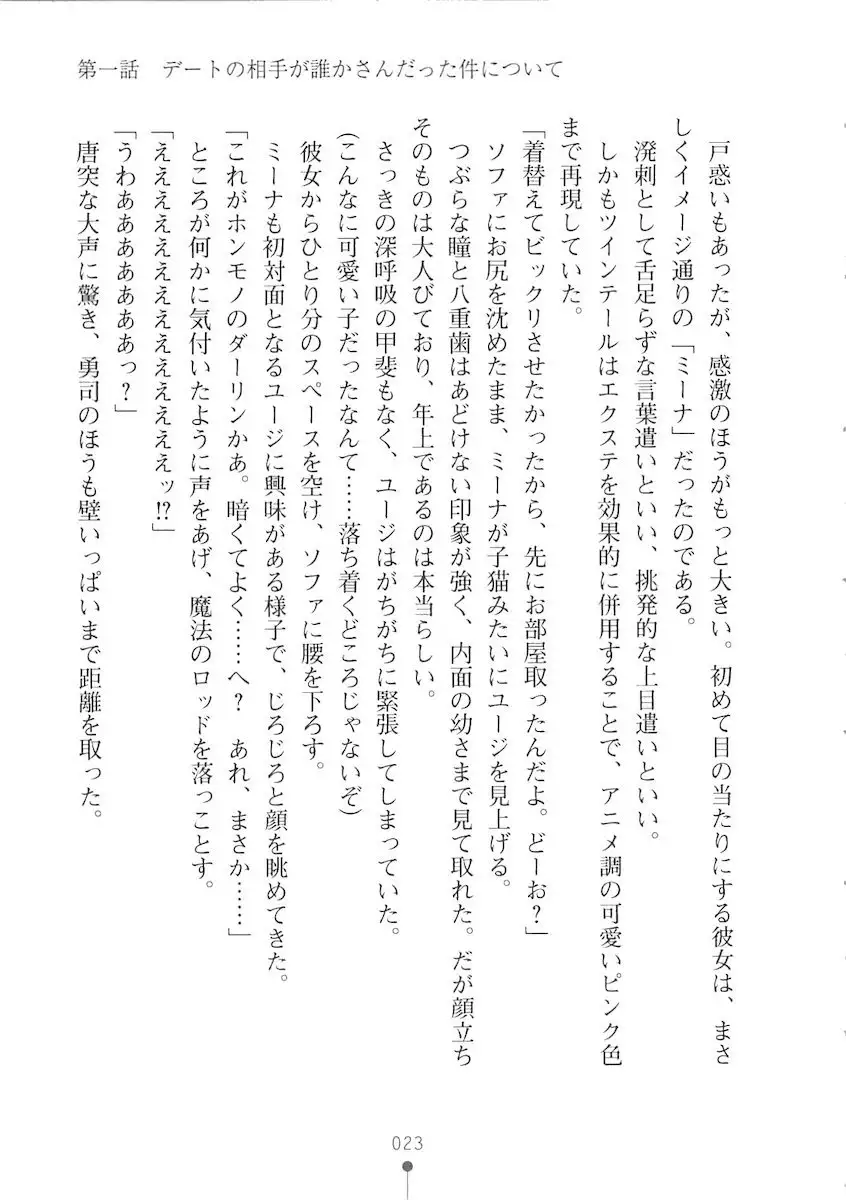 第一話　デートの相手が誰かさんだった件について
　戸惑いもあったが、感激のほうがもっと大きい。初めて目の当たりにする彼女は、まさ
しくイメージ通りの「ミーナ」だったのである。
　溌剌として舌足らずな言葉遣いといい、挑発的な上目遣いといい。
　しかもツインテールはエクステを効果的に併用することで、アニメ調の可愛いピンク色
まで再現していた。
「着替えてビックリさせたかったから、先にお部屋取ったんだよ。どーお？」
　ソファにお尻を沈めたまま、ミーナが子猫みたいにユージを見上げる。
　つぶらな瞳と八重歯はあどけない印象が強く、内面の幼さまで見て取れた。だが顔立ち
そのものは大人びており、年上であるのは本当らしい。
　さっきの深呼吸の甲斐もなく、ユージはがちがちに緊張してしまっていた。
(こんなに可愛い子だったなんて……落ち着くどころじゃないぞ)
　彼女からひとり分のスペースを空け、ソファに腰を下ろす。
　ミーナも初対面となるユージに興味がある様子で、じろじろと顔を眺めてきた。
「これがホンモノのダーリンかあ。暗くてよく……へ？　あれ、まさか……」
　ところが何かに気付いたように声をあげ、魔法のロッドを落っことす。
「ええええええええええええええッ!?」
「うわあああああああっ？」
　唐突な大声に驚き、勇司のほうも壁いっぱいまで距離を取った。
023